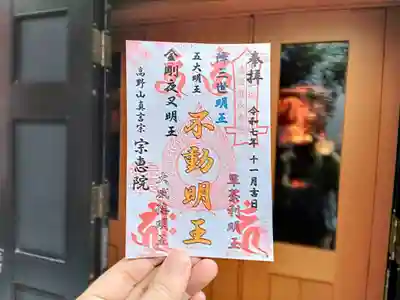 奉拝
令和七年十一月吉日
降三世明王
軍荼利明王
五大明王
不動明王
金剛夜叉明王
大威徳明王
高野山真言宗
宗恵院